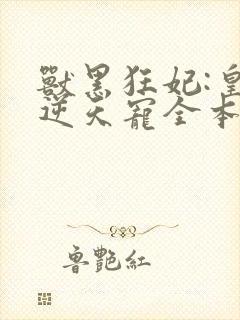 獸黑狂妃:皇
逆天寵全本
魯艷紅